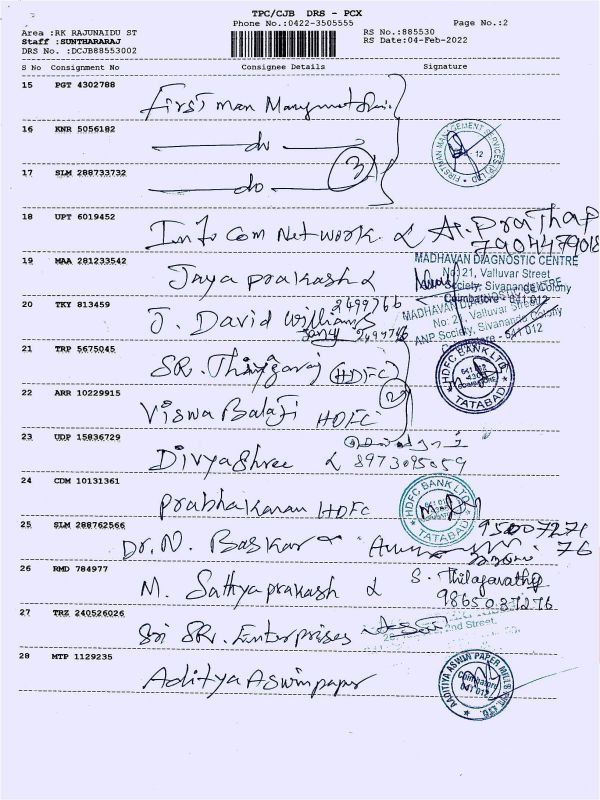 TPC/CJB DRS - PCX
Phone No.:0422-3505555 Page No.:2
Area :RK RAJUNAIDU ST RS No.:885530
Staff :SUNTHARARAJ RS Date:04-Feb-2022
DRS No. :DCJB88553002
S No Consignment No Consignee Details Signature
15 PGT 4302788
First man
16 KNR 5056182
do
FIRSTMAN MANAGEMENT SERVICES (P) LTD
12
17 SLM 288733732
do 3
18 UPT 6019452
Info Com Network & A. Prathap
7904479018
19 MAA 281233542
Jaya prakash &
MADHAVAN DIAGNOSTIC CENTRE
No: 21, Valluvar Street
Society, Sivananda Colony
Coimbatore - 641 012
20 TKY 813459
J. David Williams
2499766
MADHAVAN DIAGNOSTIC CENTRE
No: 21, Valluvar Street
ANP Society, Sivananda Colony
641 012
21 TRP 5675045
SR. Thiyagaraj (HDFC)
HDFC BANK LTD
COIMBATORE
TATABAD
22 ARR 10229915
Viswa Balaji HDFC 2
23 UDP 15836729
Divyashree & 8973095059
24 CDM 10131361
Prabhakaran HDFC
HDFC BANK LTD
TATABAD
25 SLM 288762566
Dr. N. Baskar
9500727176
26 RMD 784977
M. Sathyaprakash & S. Thilagavathy
9865037276
27 TRZ 240526026
Sri SR. Enterprises
2nd Street,
28 MTP 1129235
Aditya Aswin paper
AADITIYA ASWIN PAPER MILLS PVT. LTD.
Coimbatore
641 012